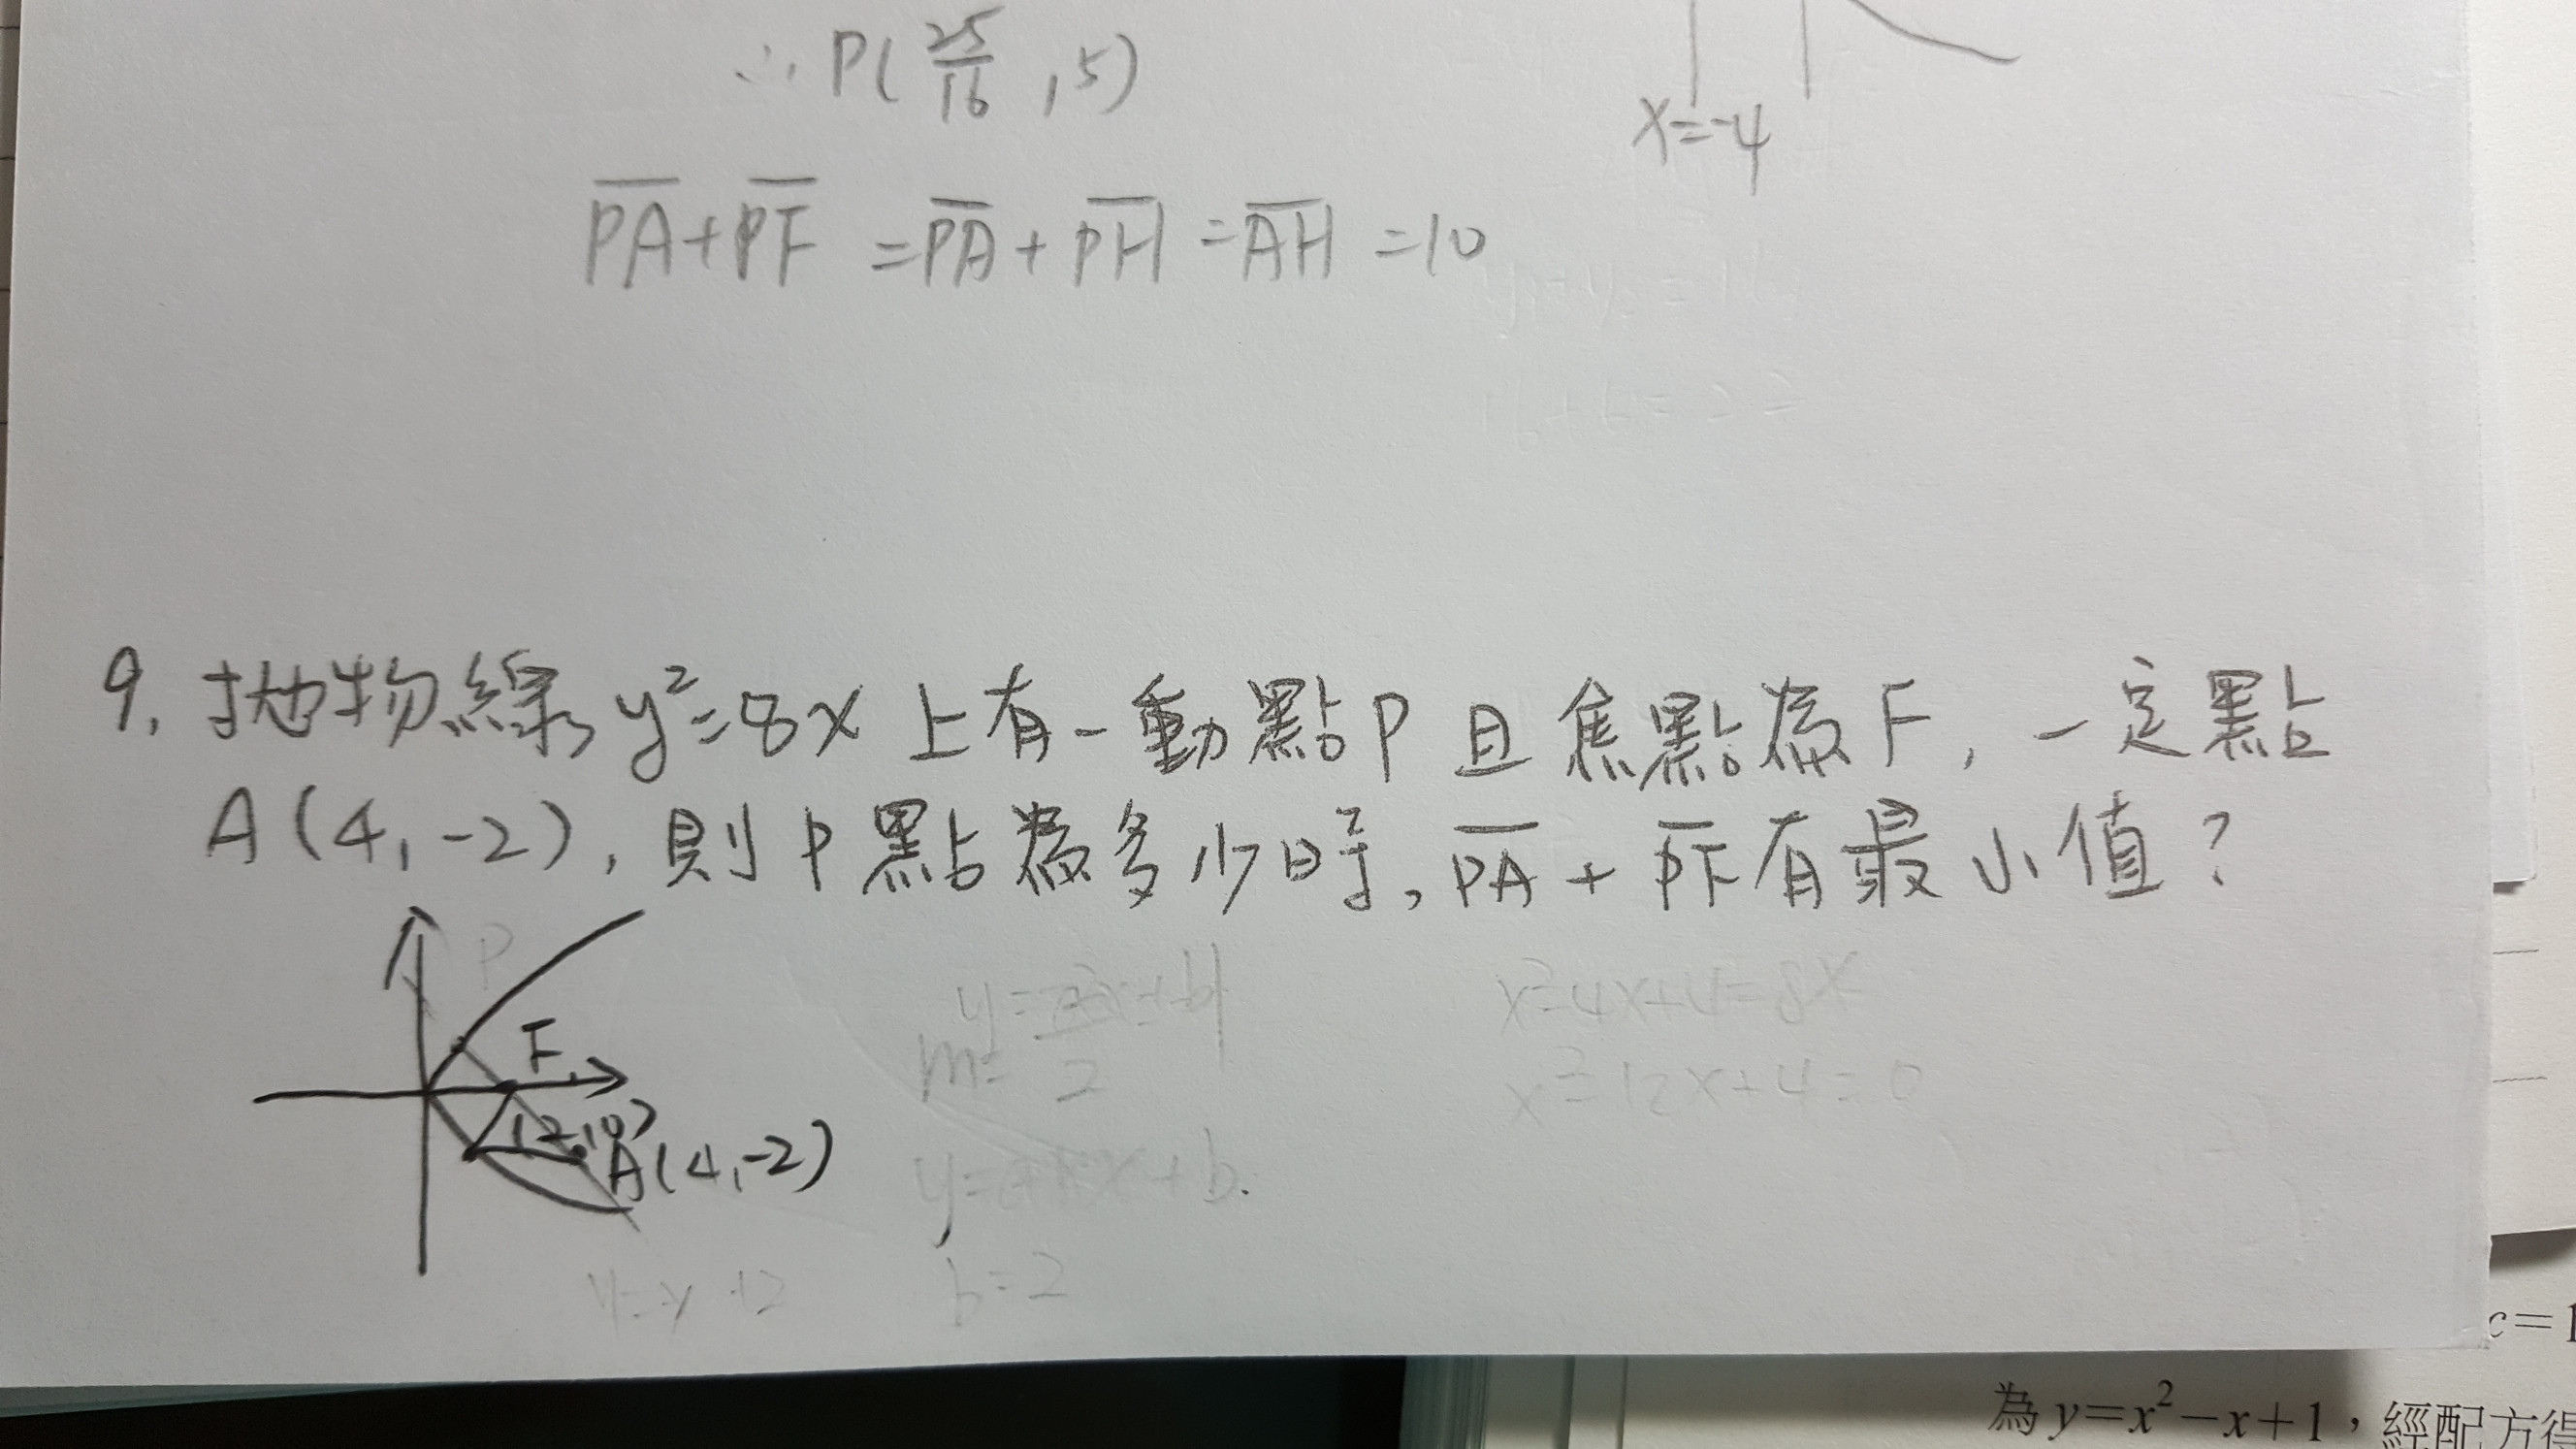 ∴ P(25/16, 5)
x=-4
PA+PF =PA+PH=AH=10
9. 拋物線 y²=8x 上有一動點P且焦點為F, 一定點
A(4,-2), 則P點為多少時, PA+PF有最小值?
P
F
(2,0)
A(4,-2)
y=x+2
m= 2
b=2
x²-4x+4=8x
x²-12x+4=0
c=1
為 y=x²-x+1，經配方得